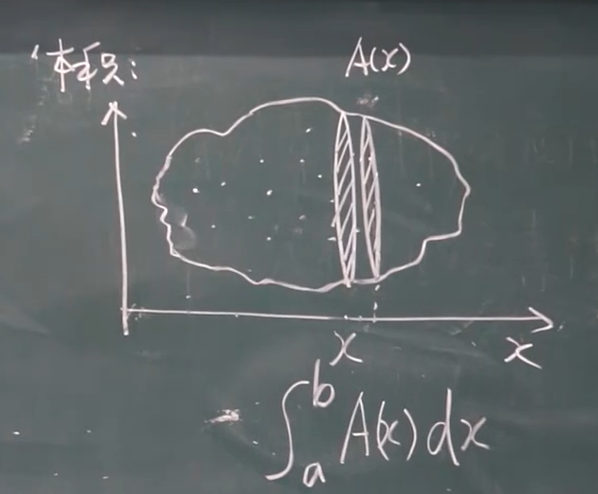 体积:
A(x)
x
x
∫_a^b A(x) dx